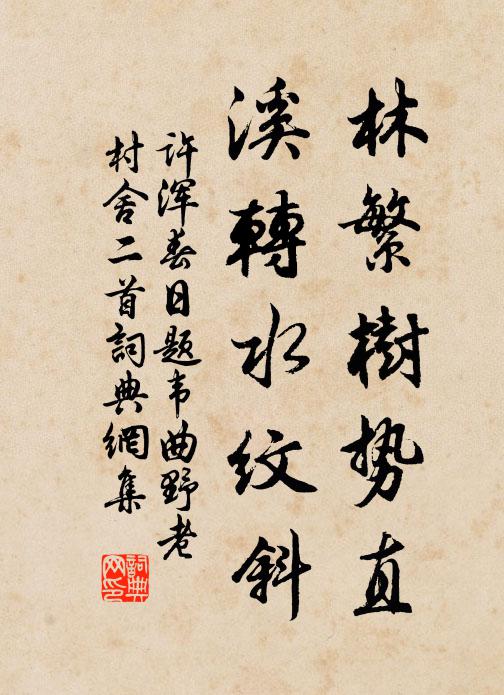 林繁樹势直
溪轉水紋斜
许浑春日题韦曲野老
村舍二首詞典網集
詞典
网印